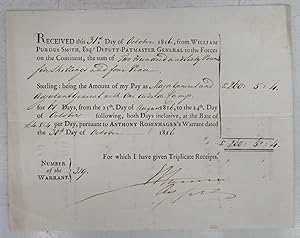 RECEIVED this 31st Day of October 1816, from WILLIAM
PURDUE SMITH, Esqr. DEPUTY-PAYMASTER GENERAL to the Forces
on the Continent, the sum of Two Hundred and Sixty Pounds
five Shillings and four Pence
Sterling: being the Amount of my Pay as
Assistant
for 61 Days, from the 25th Day of August 1816, to the 24th Day
of October following, both Days inclusive, at the Rate of
per Day, pursuant to ANTHONY ROSENHAGEN'S Warrant dated
the 31st Day of October 1816
£ 260: 5: 4.
£ 260: 5: 4.
For which I have given Triplicate Receipts.
NUMBER
of the
WARRANT.